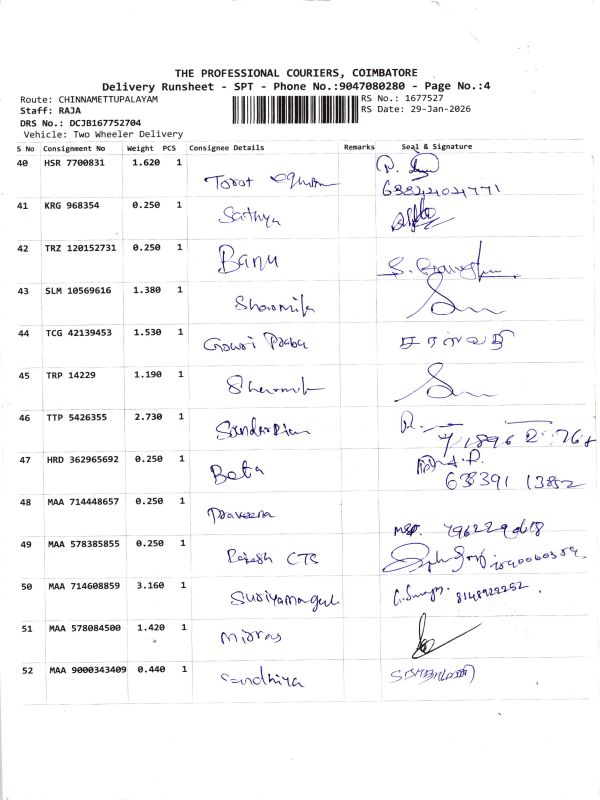 THE PROFESSIONAL COURIERS, COIMBATORE
Delivery Runsheet - SPT - Phone No.:9047080280 - Page No.:4
Route: CHINNAMETTUPALAYAM RS No.: 1677527
Staff: RAJA RS Date: 29-Jan-2026
DRS No.: DCJB167752704
Vehicle: Two Wheeler Delivery
S No Consignment No Weight PCS Consignee Details Remarks Seal & Signature
40 HSR 7700831 1.620 1
41 KRG 968354 0.250 1 Sathya
42 TRZ 120152731 0.250 1 Banu
43 SLM 10569616 1.380 1 Sharmila
44 TCG 42139453 1.530 1 Gowri Praba சரஸ்வதி
45 TRP 14229 1.190 1
46 TTP 5426355 2.730 1
47 HRD 362965692 0.250 1 Beta 638391 13852
48 MAA 714448657 0.250 1 Praveena
49 MAA 578385855 0.250 1 Rajesh CTS
50 MAA 714608859 3.160 1 8148922252
51 MAA 578084500 1.420 1
52 MAA 9000343409 0.440 1 Sandhiya